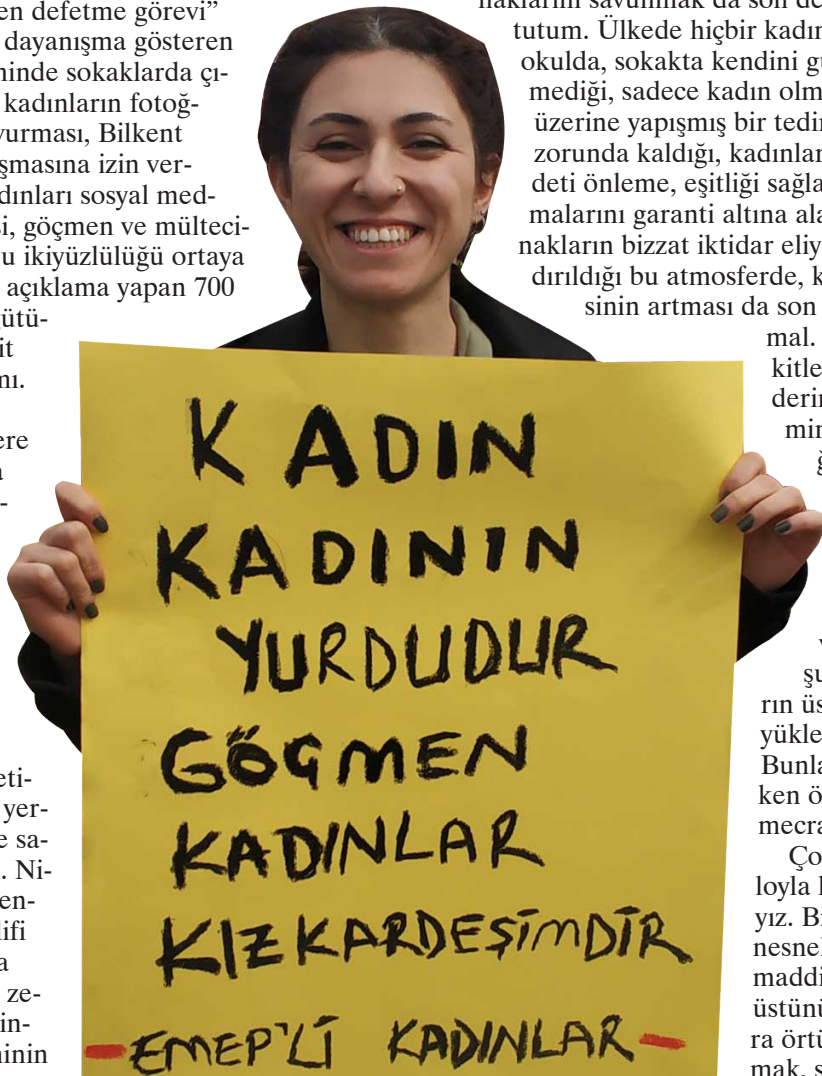 en defetme görevi”
dayanışma gösteren
inde sokaklarda çı-
kadınların fotoğ-
vurması, Bilkent
şmasına izin ver-
dınları sosyal med-
si, göçmen ve mülteci-
u ikiyüzlülüğü ortaya
açıklama yapan 700
ütü-
it
mı.
ere
a
-
eti-
yer-
e sa-
. Ni-
en-
lifi
a
ze-
in-
inin
naklarını savunmak da son de
tutum. Ülkede hiçbir kadın
okulda, sokakta kendini gü
mediği, sadece kadın olm
üzerine yapışmış bir tedir
zorunda kaldığı, kadınlar
deti önleme, eşitliği sağla
malarını garanti altına ala
nakların bizzat iktidar eliy
dırıldığı bu atmosferde, k
sinin artması da son
mal.
kitle
derin
min
ğ
şu
rın üs
yükle
Bunla
ken ö
mecra
Ço
loyla
yız. Bi
nesnel
maddi
üstünü
ra örtü
mak, s
KADIN
KADININ
YURDUDUR
GÖÇMEN
KADINLAR
KIZKARDEŞİMDİR
- EMEP'Lİ KADINLAR -